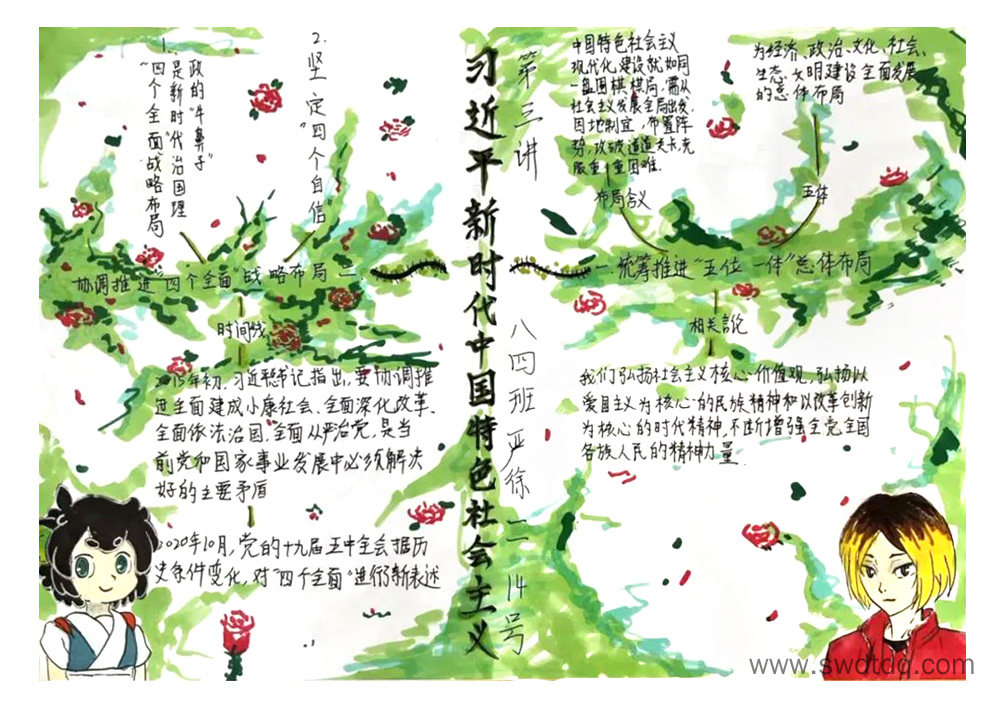 习近平新时代中国特色社会主义
第三讲
八四班 严徐二 14号
中国特色社会主义
现代化建设就如同
一盘围棋棋局.需从
社会主义发展全局出发,
因地制宜,布置阵
势,攻破道道关卡,克
服重重困难.
布局含义
为经济、政治、文化、社会、
生态文明建设全面发展
的总体布局
五体
一.统筹推进“五位一体”总体布局
相关言论
我们弘扬社会主义核心价值观,弘扬以
爱国主义为核心的民族精神和以改革创新
为核心的时代精神,不断增强全党全国
各族人民的精神力量.
协调推进“四个全面”战略布局 二
1.是新时代治国理
政的“牛鼻子”
“四个全面”战略布局
2.坚定“四个自信”
时间线
2015年初,习近平书记指出,要协调推
进全面建成小康社会、全面深化改革、
全面依法治国,全面从严治党,是当
前党和国家事业发展中必须解决
好的主要矛盾
2020年10月,党的十九届五中全会据历
史条件变化,对“四个全面”进行新表述
www.swdtdq.com